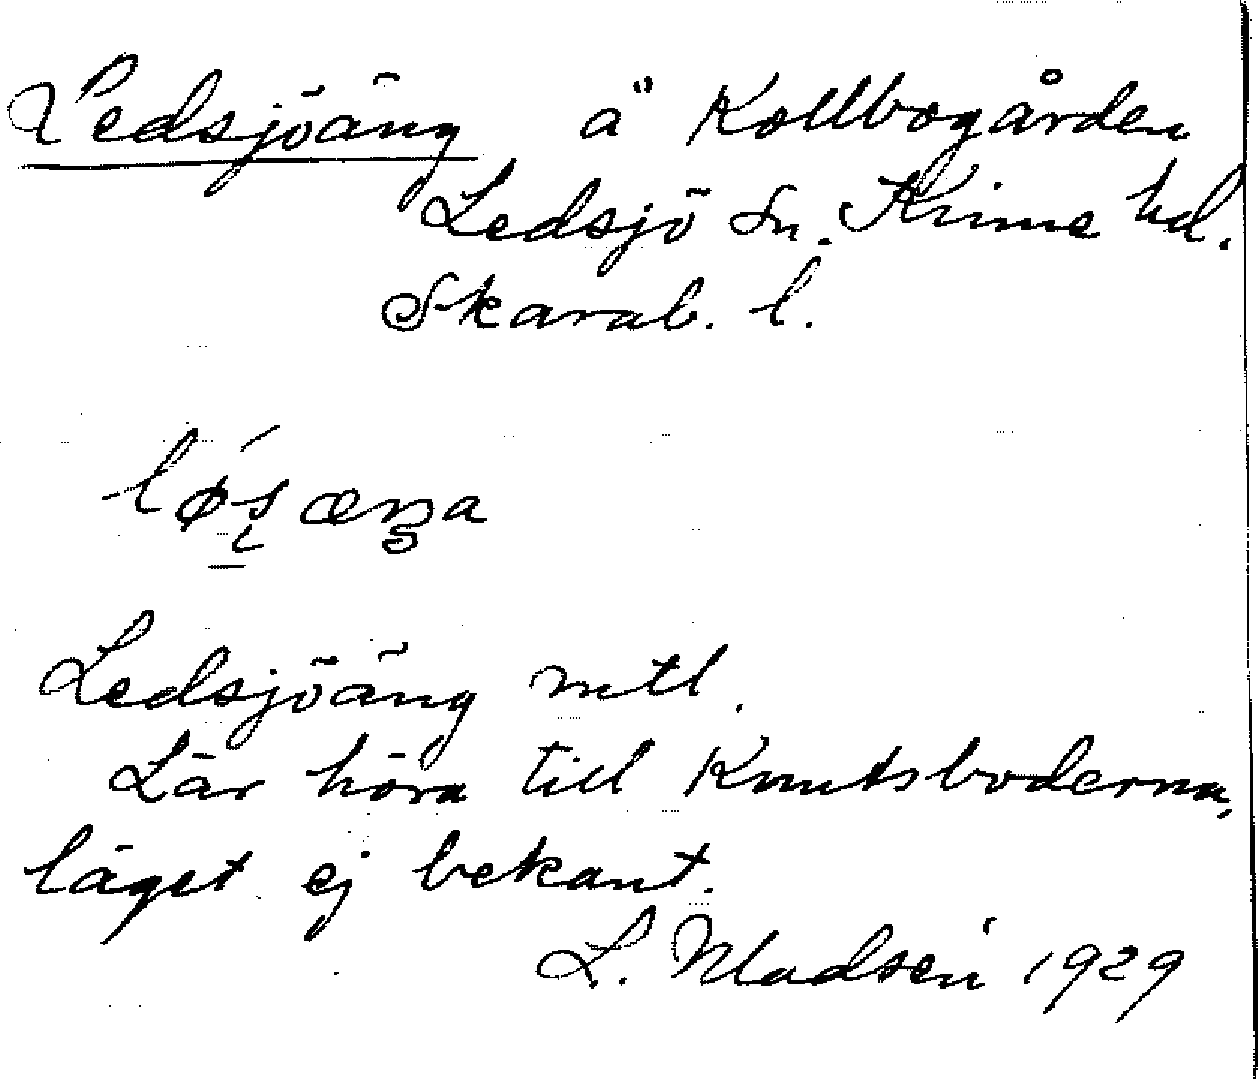 Ledsjöäng å Kollbogården
Ledsjö sn. Kinne hd.
Skarab. l.
Ledsjöäng mtl.
Lär höra till Knutsboderna,
läget ej bekant.
L. Madsén 1929